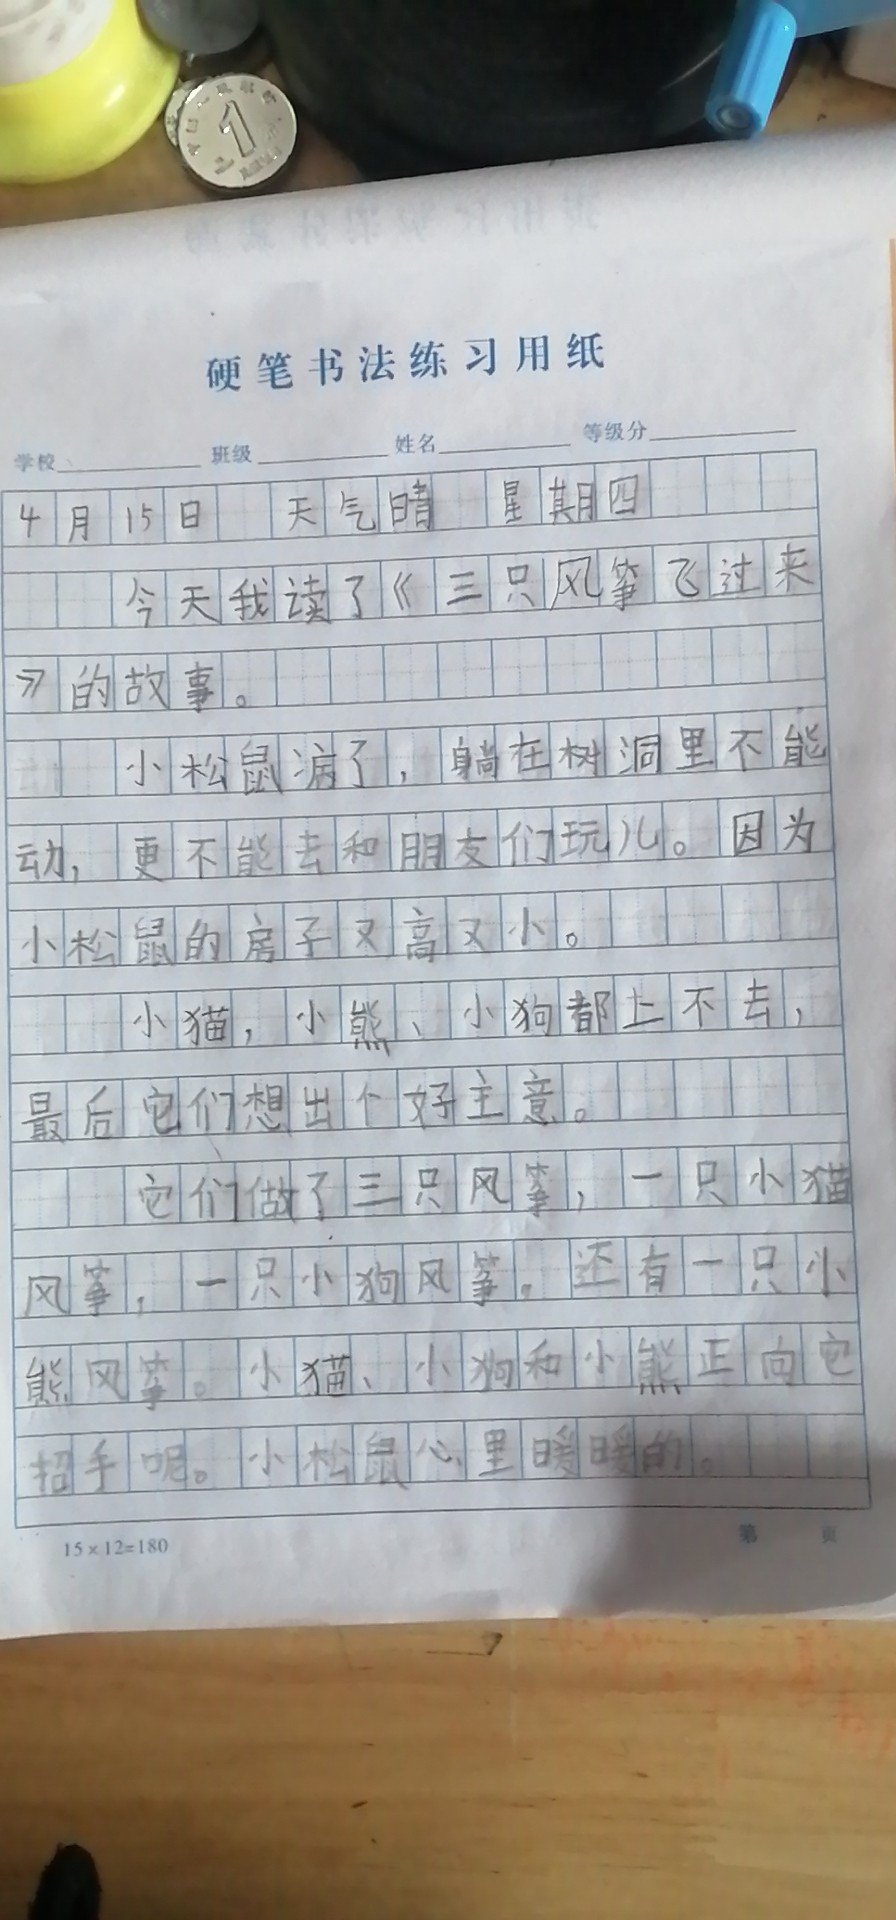 硬笔书法练习用纸
学校 班级 姓名 等级分
4月15日 天气晴 星期四
今天我读了《三只风筝飞过来
》的故事。
小松鼠病了，躺在树洞里不能
动，更不能去和朋友们玩儿。因为
小松鼠的房子又高又小。
小猫，小熊、小狗都上不去，
最后它们想出个好主意。
它们做了三只风筝，一只小猫
风筝，一只小狗风筝。还有一只小
熊风筝。小猫、小狗和小熊正向它
招手呢。小松鼠心里暖暖的。
15×12=180
第 页